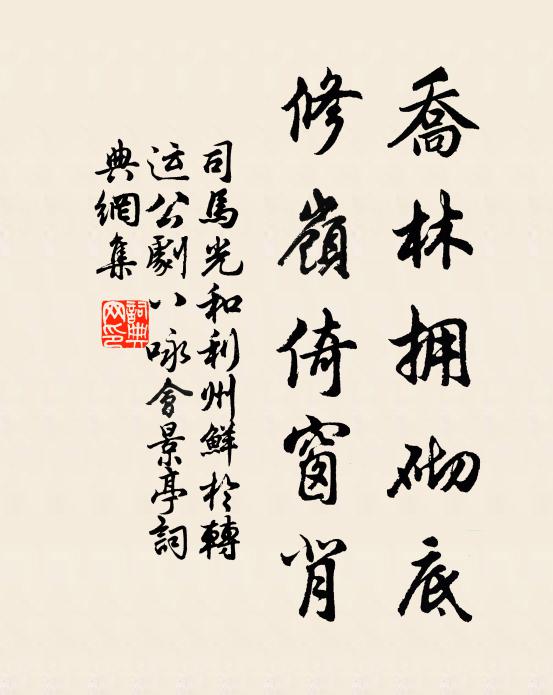 喬林拥砌底
修嶺倚窗背
司馬光和利州鮮於轉
运公劇八咏會景亭詞
典網集
詞典网印